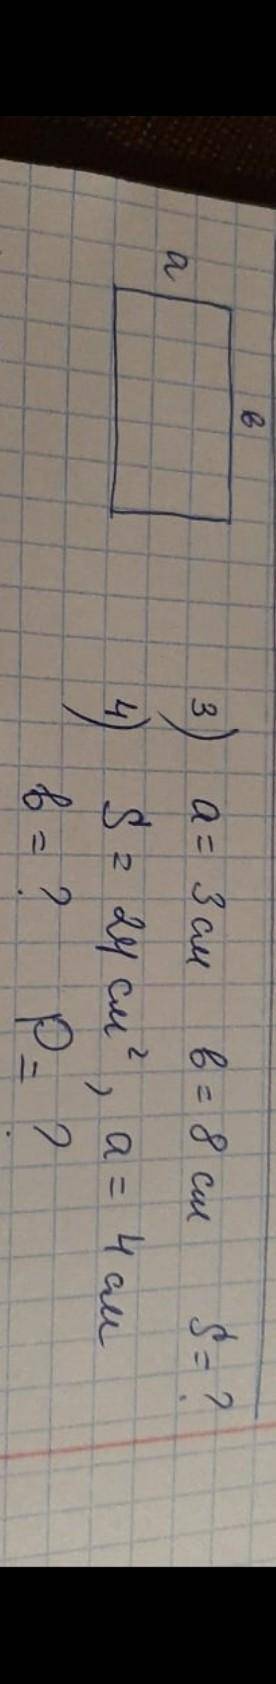 a
в
3) a = 3 см в = 8 см S = ?
4) S = 24 см², a = 4 см
в = ? P = ?